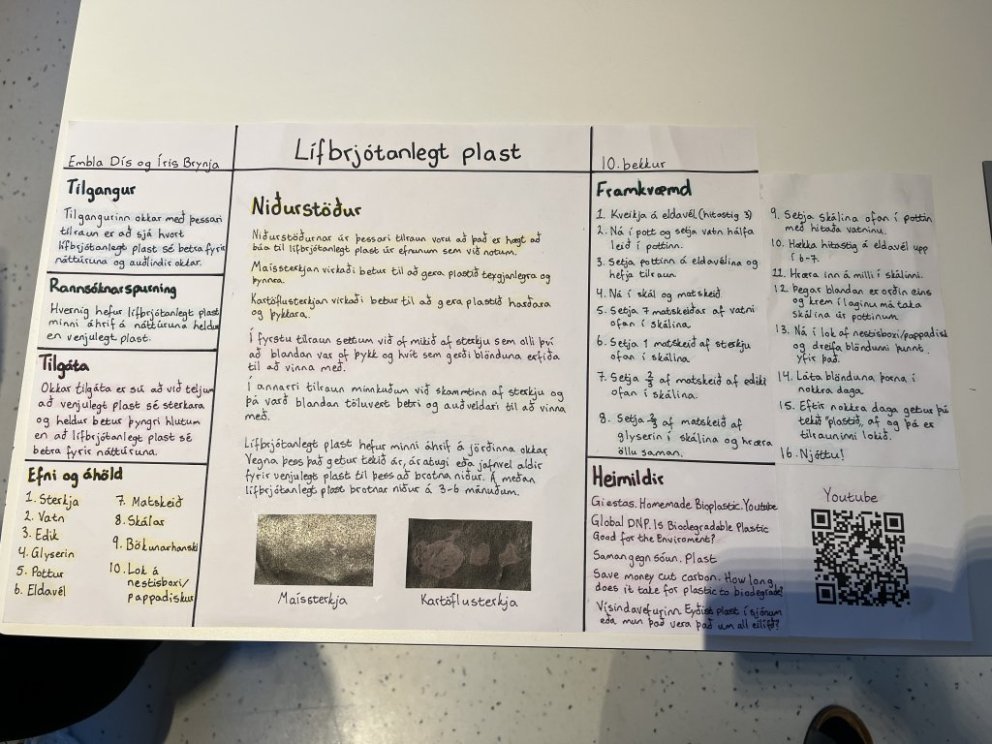 Embla Dís og Íris Brynja
Lífbrjótanlegt plast
10. bekkur
Tilgangur
Tilgangurinn okkar með þessari
tilraun er að sjá hvort
lífbrjótanlegt plast sé betra fyrir
náttúruna og auðlindir okkar.
Rannsóknarspurning
Hvernig hefur lífbrjótanlegt plast
minni áhrif á náttúruna heldur
en venjulegt plast.
Tilgáta
Okkar tilgáta er sú að við teljum
að venjulegt plast sé sterkara
og heldur betur þyngri hlutum
en að lífbrjótanlegt plast sé
betra fyrir náttúruna.
Efni og áhöld
1. Sterkja
2. Vatn
3. Edik
4. Glyserin
5. Pottur
6. Eldavél
7. Matskeið
8. Skálar
9. Bökunarhanski
10. Lok á
nestisboxi/
pappadiskur
Niðurstöður
Niðurstöðurnar úr þessari tilraun voru að það er hægt að
búa til lífbrjótanlegt plast úr efnunum sem við notum.
Maíssterkjan virkaði betur til að gera plastið teygjanlegra og
þynnra.
Kartöflusterkjan virkaði betur til að gera plastið harðara
og þykkara.
Í fyrstu tilraun settum við of mikið af sterkju sem olli því
að blandan var of þykk og hvít sem gerði blönduna erfiða
til að vinna með.
Í annarri tilraun minnkuðum við skammtinn af sterkju og
þá varð blandan töluvert betri og auðveldari til að vinna
með.
Lífbrjótanlegt plast hefur minni áhrif á jörðinna okkar
Vegna þess það getur tekið ár, áratugi eða jafnvel aldir
fyrir venjulegt plast til þess að brotna niður. Á meðan
lífbrjótanlegt plast brotnar niður á 3-6 mánuðum.
Maíssterkja
Kartöflusterkja
Framkvæmd
1. Kveikja á eldavél (hitastig 3)
2. Ná í pott og setja vatn hálfa
leið í pottinn.
3. Setja pottinn á eldavélina og
hefja tilraun.
4. Ná í skál og matskeið.
5. Setja 7 matskeiðar af vatni
ofan í skálina.
6. Setja 1 matskeið af sterkju
ofan í skálina.
7. Setja 2/3 af matskeið af ediki
ofan í skálina.
8. Setja 2/3 af matskeið af
glyserin í skálina og hræra
öllu saman.
9. Setja skálina ofan í pottin
með hitaða vatninu.
10. Hækka hitastig á eldavél upp
í 6-7.
11. Hræra inn á milli í skálinni.
12. Þegar blandan er orðin eins
og krem í laginu má taka
skálina úr pottinum.
13. Ná í lok af nestisboxi/pappadisk
og dreifa blöndunni þunnt
yfir það.
14. Láta blönduna þorna í
nokkra daga.
15. Eftir nokkra daga getur þú
tekið "plastið" af og þá er
tilrauninni lokið.
16. Njóttu!
Heimildir
Giestas. Homemade Bioplastic. Youtube
Global DNP. Is Biodegradable Plastic
Good for the Enviroment?
Saman gegn sóun. Plast
Save money cut carbon. How long
does it take for plastic to biodegrade?
Vísindavefurinn. Eyðist plast í sjónum
eða mun það vera það um all eilífð?
Youtube